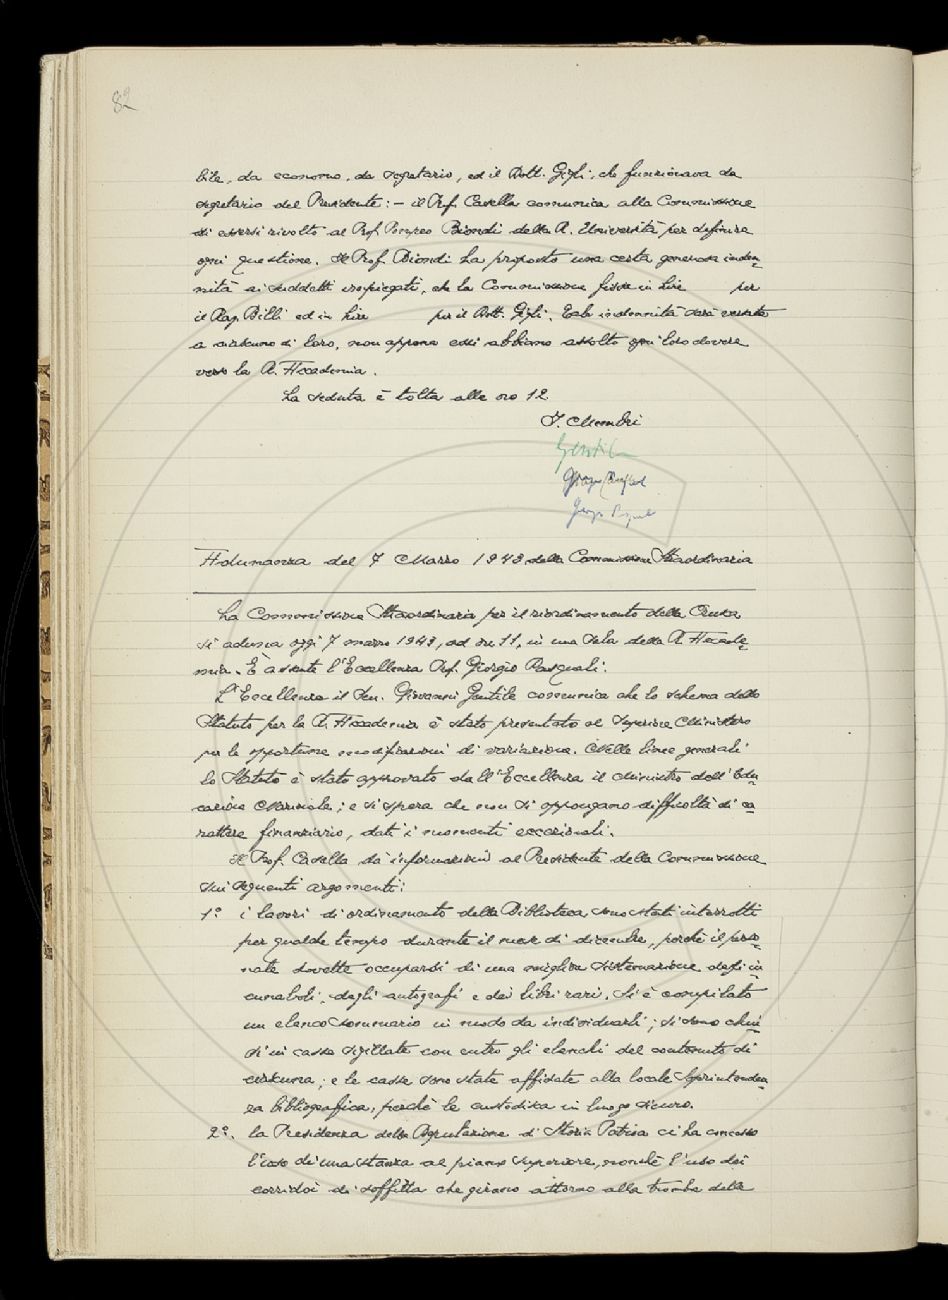 82
bile, da economo, da segretario, ed il Dott. Gigli, che funzionava da
segretario del Presidente: – il Prof. Casella comunica alla Commissione
di essersi rivolto al Prof. Pompeo Biondi della R. Università per definire
ogni questione. Il Prof. Biondi ha proposto una certa generosa inden-
nità ai suddetti impiegati, che la Commissione fissa in lire per
il Rag. Billi ed in lire per il Dott. Gigli. Tale indennità sarà versata
a ciascuno di loro, non appena essi abbiano assolto ogni loro dovere
verso la R. Accademia.
La seduta è tolta alle ore 12
Gentile
Adunanza del 7 Marzo 1943 della Commissione Straordinaria
La Commissione Straordinaria per il riordinamento della Crusca
si aduna oggi 7 marzo 1943, ad ore 11, in una Sala della R. Accade-
mia. È assente l'Eccellenza Prof. Giorgio Pasquali.
L'Eccellenza il Sen. Giovanni Gentile comunica che lo schema dello
Statuto per la R. Accademia è stato presentato al Superiore Ministero
per le opportune modificazioni di variazione. Nelle linee generali
lo Statuto è stato approvato dall'Eccellenza il Ministro dell'Edu-
cazione Nazionale; e si spera che non si oppongano difficoltà di ca-
rattere finanziario, dati i momenti eccezionali.
Il Prof. Casella dà informazioni al Presidente della Commissione
sui seguenti argomenti:
1º i lavori di ordinamento della Biblioteca sono stati interrotti
per qualche tempo durante il mese di dicembre, perchè il perso-
nale dovette occuparsi di una miglior sistemazione degli in-
cunaboli, degli autografi e dei libri rari. Si è compilato
un elenco sommario in modo da individuarli; si sono chiu-
si in casse sigillate con entro gli elenchi del contenuto di
ciascuna; e le casse sono state affidate alla locale Soprintenden-
za bibliografica, perchè le custodisca in luogo sicuro.
2º. la Presidenza della Deputazione di Storia Patria ci ha concesso
l'uso di una stanza al piano superiore, nonchè l'uso dei
corridoi di soffitta che girano attorno alla tromba delle